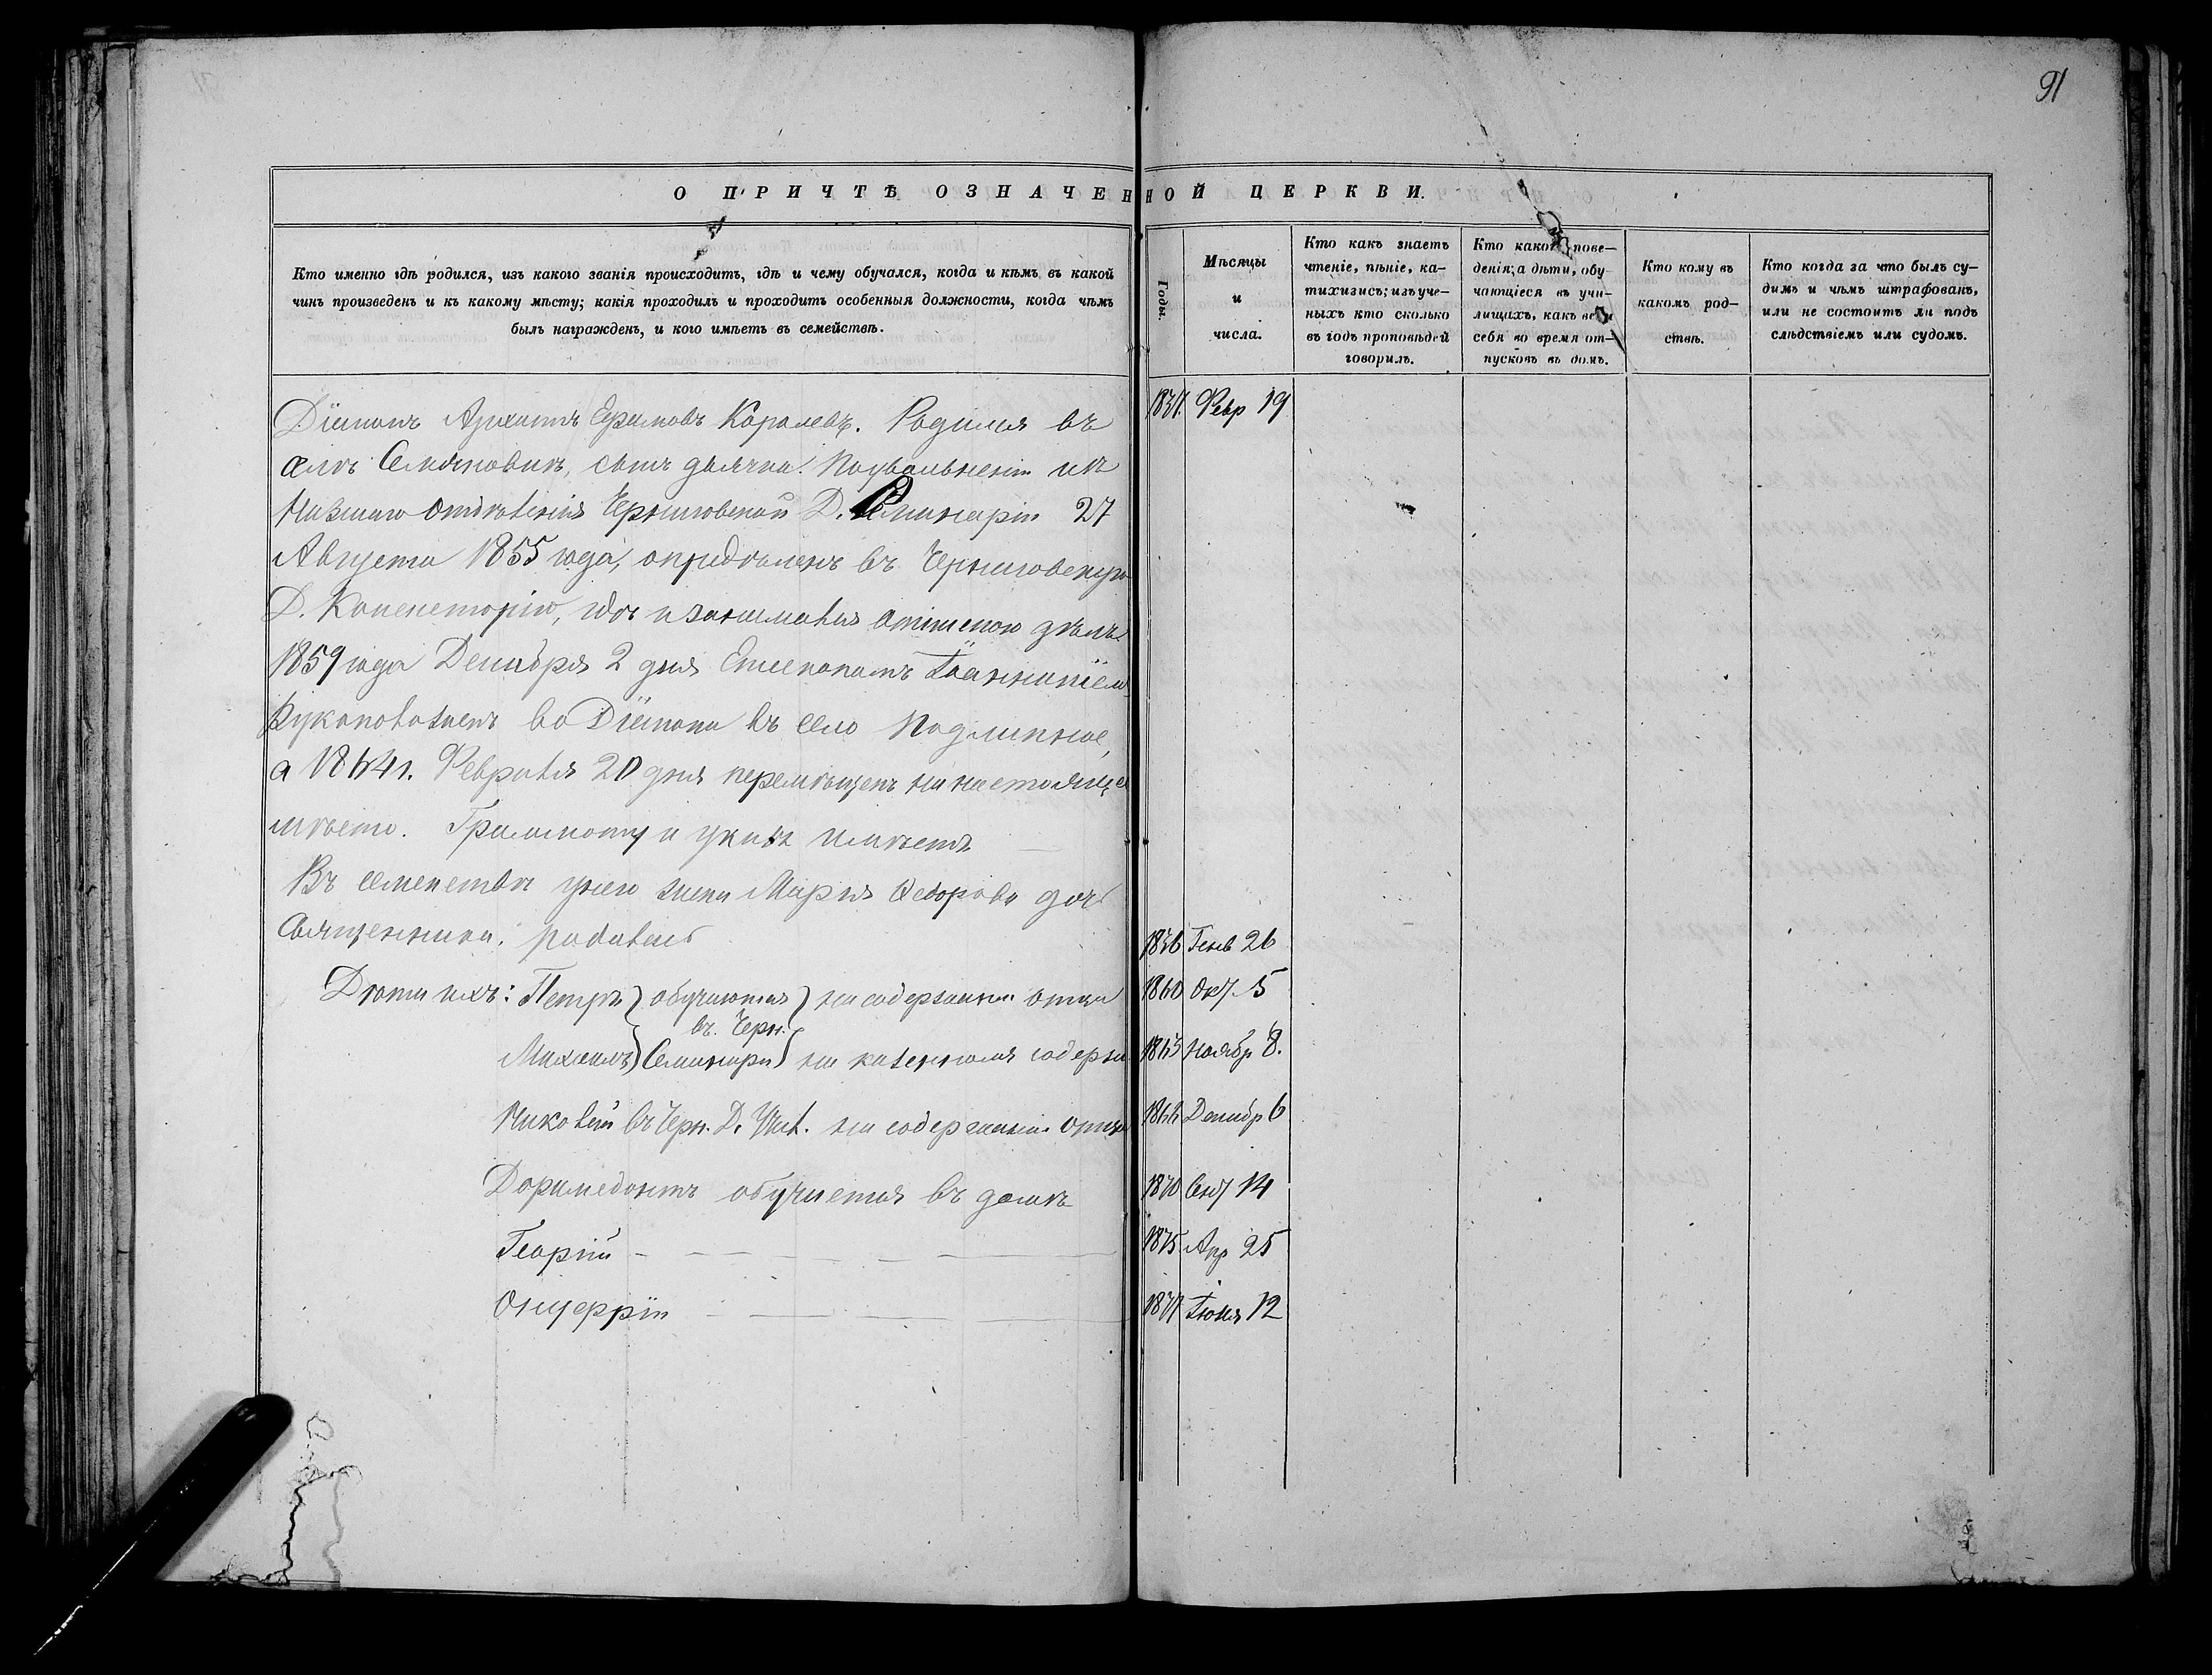 91
О ПРИЧТѢ ОЗНАЧЕННОЙ ЦЕРКВИ.
Кто именно гдѣ родился, изъ какого званія происходитъ, гдѣ и чему обучался, когда и кѣмъ въ какой
чинъ произведенъ и къ какому мѣсту; какія проходилъ и проходитъ особенныя должности, когда чѣмъ
былъ награжденъ, и кого имѣетъ въ семействѣ.
Годы.
Мѣсяцы
и
числа.
Кто какъ знаетъ
чтеніе, пѣніе, ка-
тихизисъ; изъ уче-
ныхъ кто сколько
въ годъ проповѣдей
говорилъ.
Кто какого пове-
денія; а дѣти, обу-
чающіеся въ учи-
лищахъ, какъ вели
себя во время от-
пусковъ въ домъ.
Кто кому въ
какомъ род-
ствѣ.
Кто когда за что былъ су-
димъ и чѣмъ штрафованъ,
или не состоитъ ли подъ
слѣдствіемъ или судомъ.
Діаконъ Ефимовъ Королевъ. Родился въ
селѣ сынъ дьячка. По увольненіи изъ
Низшаго отдѣленія Черниговской Д. Семинаріи 27
Августа 1855 года, опредѣленъ въ Черниговскую
Д. Консисторію, гдѣ и занимался дѣлъ.
1859 года Декабря 2 дня Епископомъ Іоанникіем
Рукоположенъ во Діакона въ село Подлипное,
а 1864 г. Февраля 20 дня перемѣщенъ на настоящее
мѣсто. Граммоту и указъ имѣетъ
Въ семействѣ у него жена Марія Ѳедорова дочь
Священника. родилась
Дѣти ихъ: Петръ обучаются на содержаніи отца
въ Черн.
Михаилъ Семинаріи на казенномъ содерж
Николай въ Черн. Д. Учил. на содержаніи отца
Доримедонтъ обучается въ домѣ
Георгій
Онуфрій
Февр 19
Генв 26
1860 Окт. 5
1863 Ноябр 8.
1866 Декабр 6
1870 14
1875 Апр 25
1877 Іюня 12